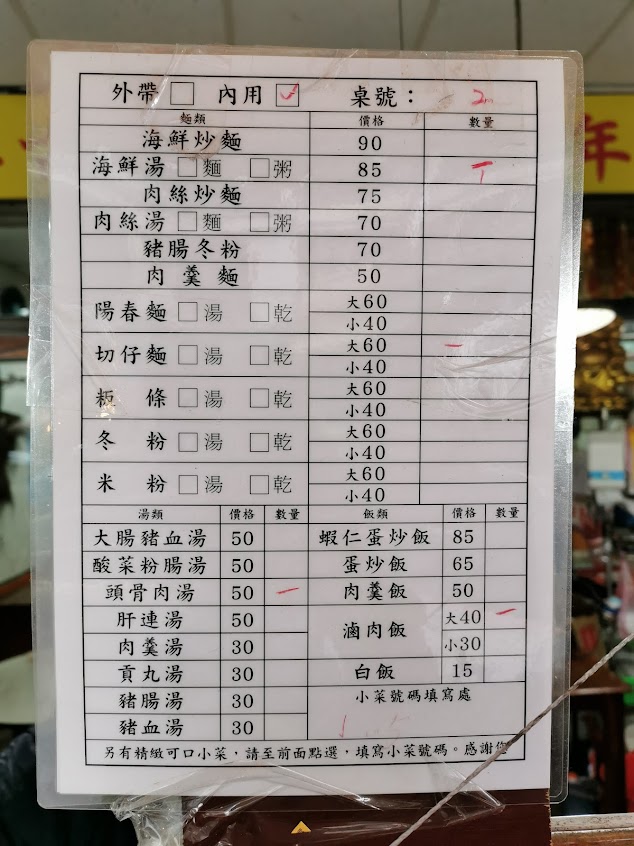 外帶 □ 內用 ☑ 桌號：2
麵類 價格 數量
海鮮炒麵 90
海鮮湯 □麵 □粥 85
肉絲炒麵 75
肉絲湯 □麵 □粥 70
豬腸冬粉 70
肉羹麵 50
陽春麵 □湯 □乾 大60
小40
切仔麵 □湯 □乾 大60 一
小40
粄條 □湯 □乾 大60
小40
冬粉 □湯 □乾 大60
小40
米粉 □湯 □乾 大60
小40
湯類 價格 數量 飯類 價格 數量
大腸豬血湯 50 蝦仁蛋炒飯 85
酸菜粉腸湯 50 蛋炒飯 65
頭骨肉湯 50 一 肉羹飯 50
肝連湯 50 滷肉飯 大40 一
肉羹湯 30 小30
貢丸湯 30 白飯 15
豬腸湯 30 小菜號碼填寫處
豬血湯 30
另有精緻可口小菜，請至前面點選，填寫小菜號碼。感謝您
年